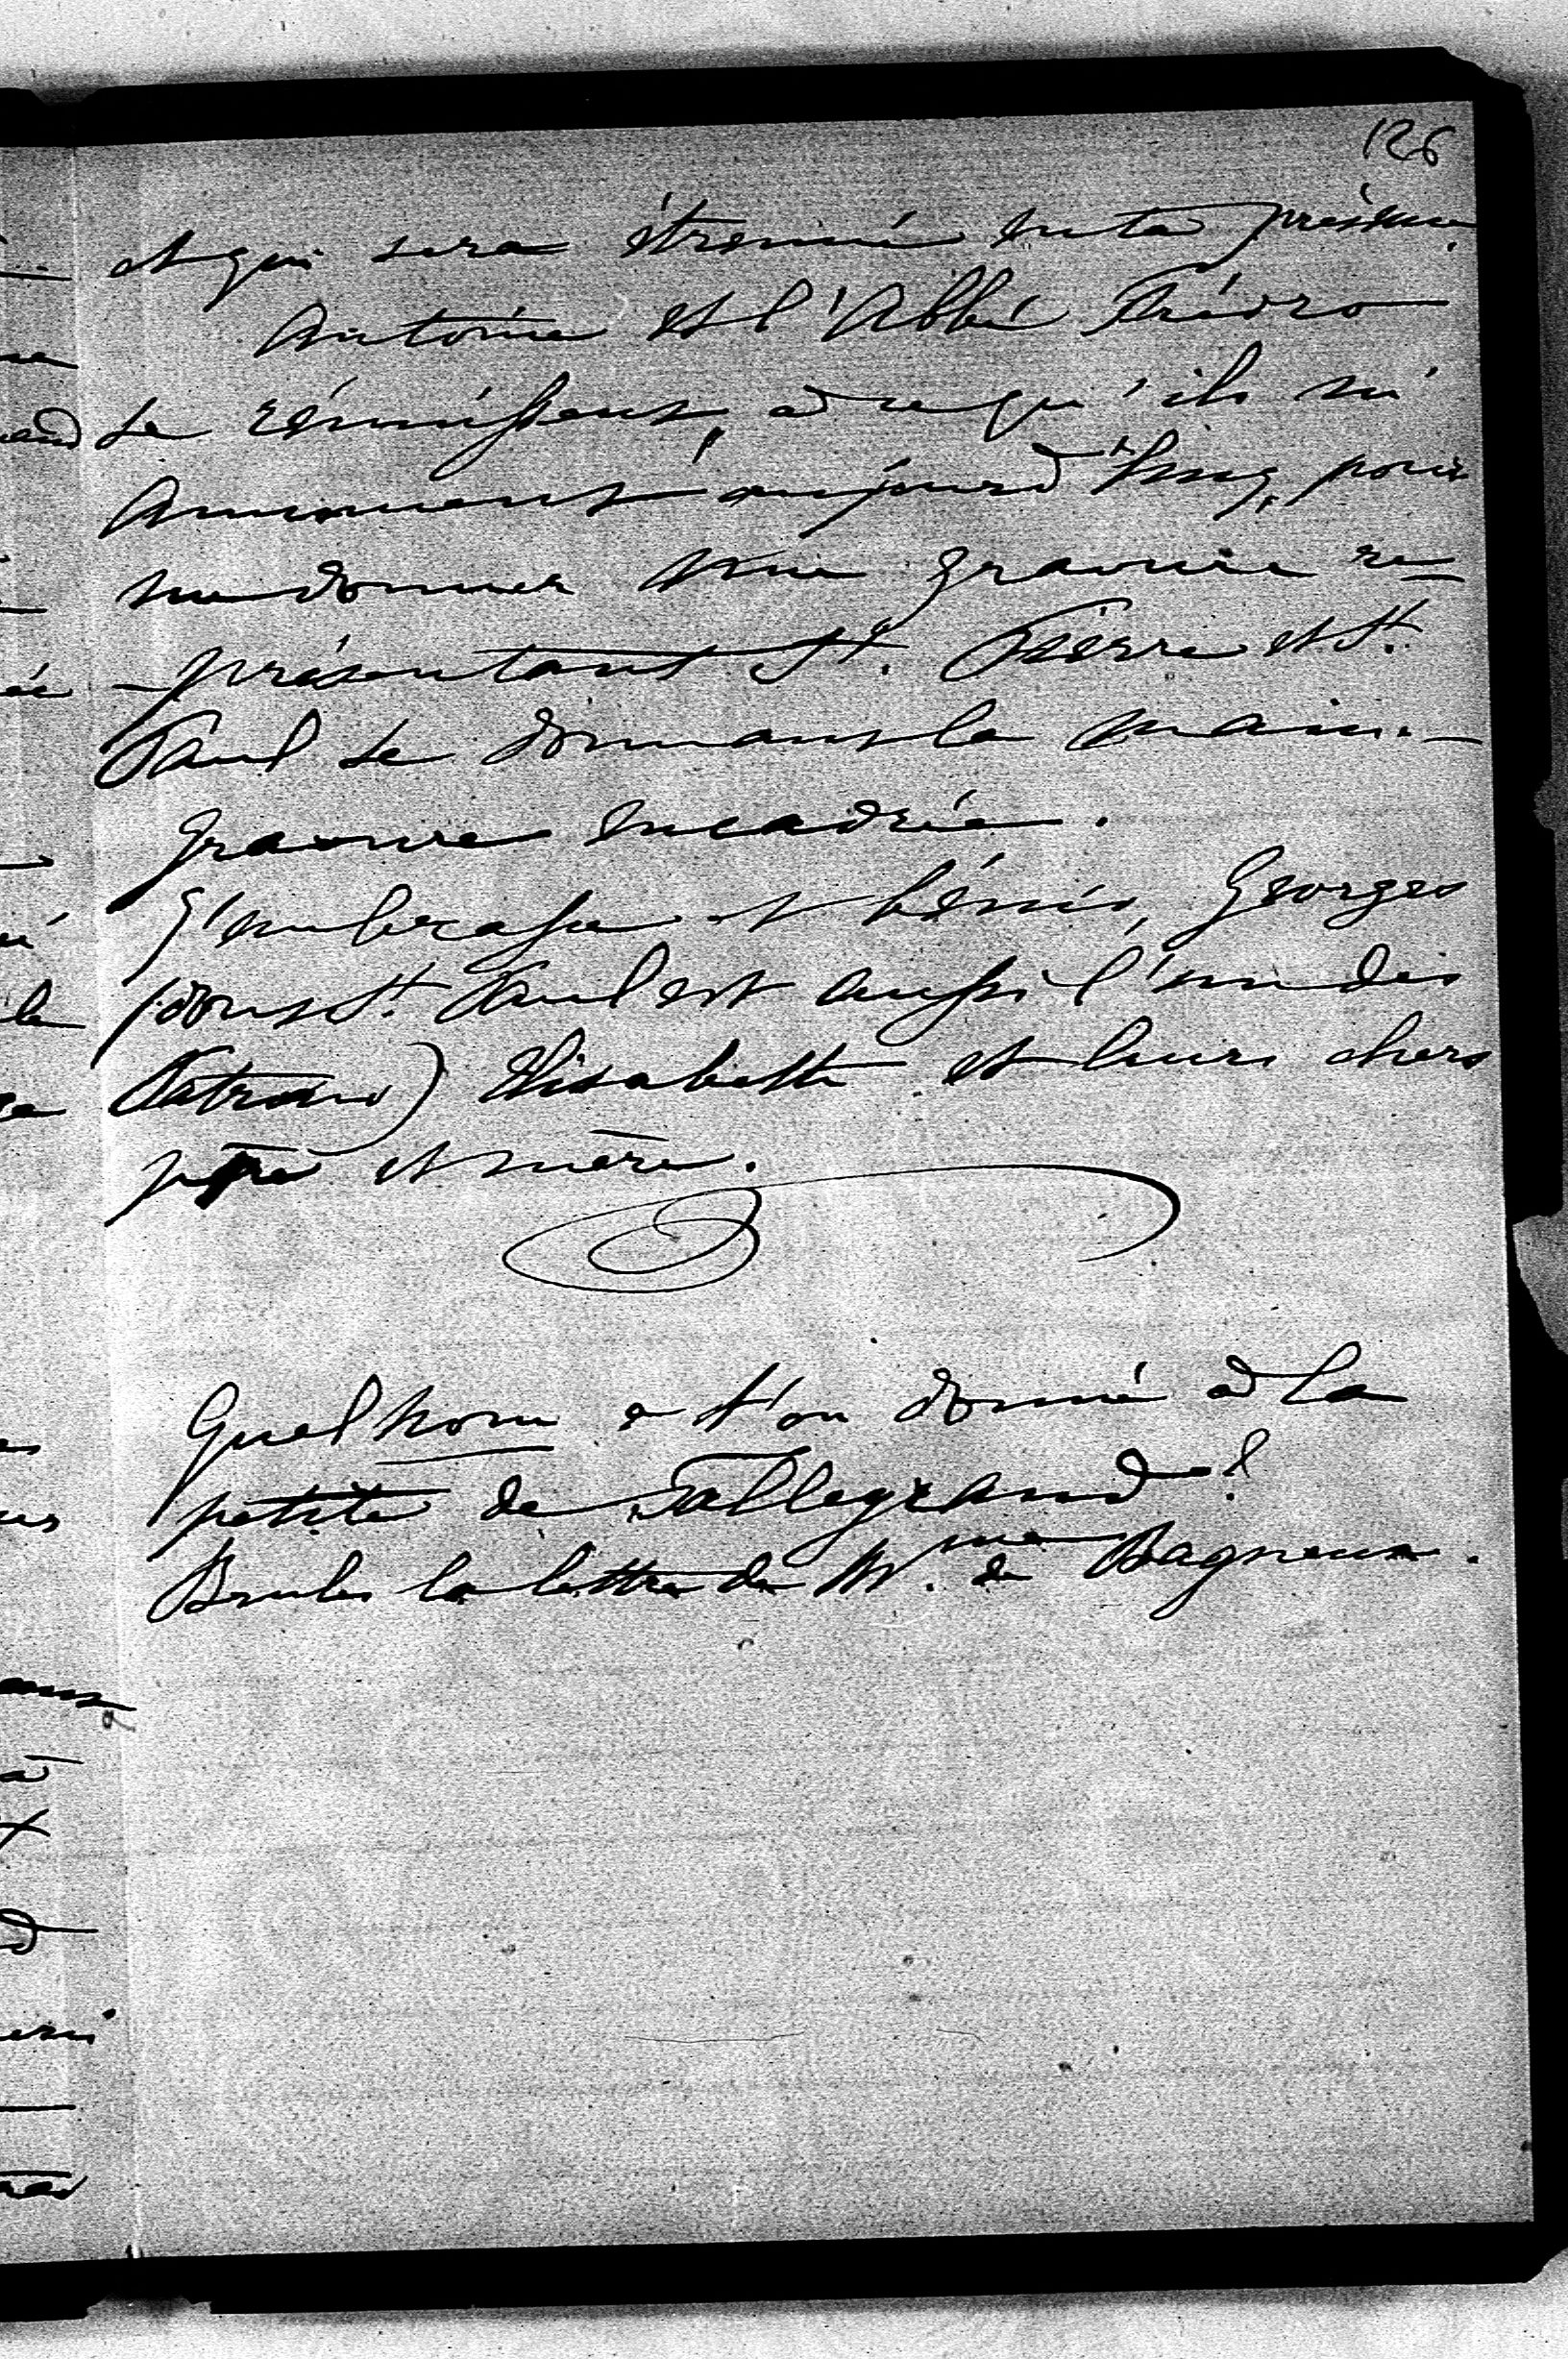 126
et qui sera étrenné en ta présence.
Antoine et l'Abbé
se réunissent, à ce qu'ils m'
annoncent aujourd'huy, pour
me donner une gravure re-
-présentant St. Pierre et St.
Paul se donnant la main. -
gravure encadrée.
J'embrasse et bénis, Georges
(dont St. Paul est aussi l'un des
Patrons) Elisabeth et leurs chers
père et mère.
Quel nom a t'on donné à la
petite de Sallegrand?
Brulez la lettre de Mme de Bagneux.